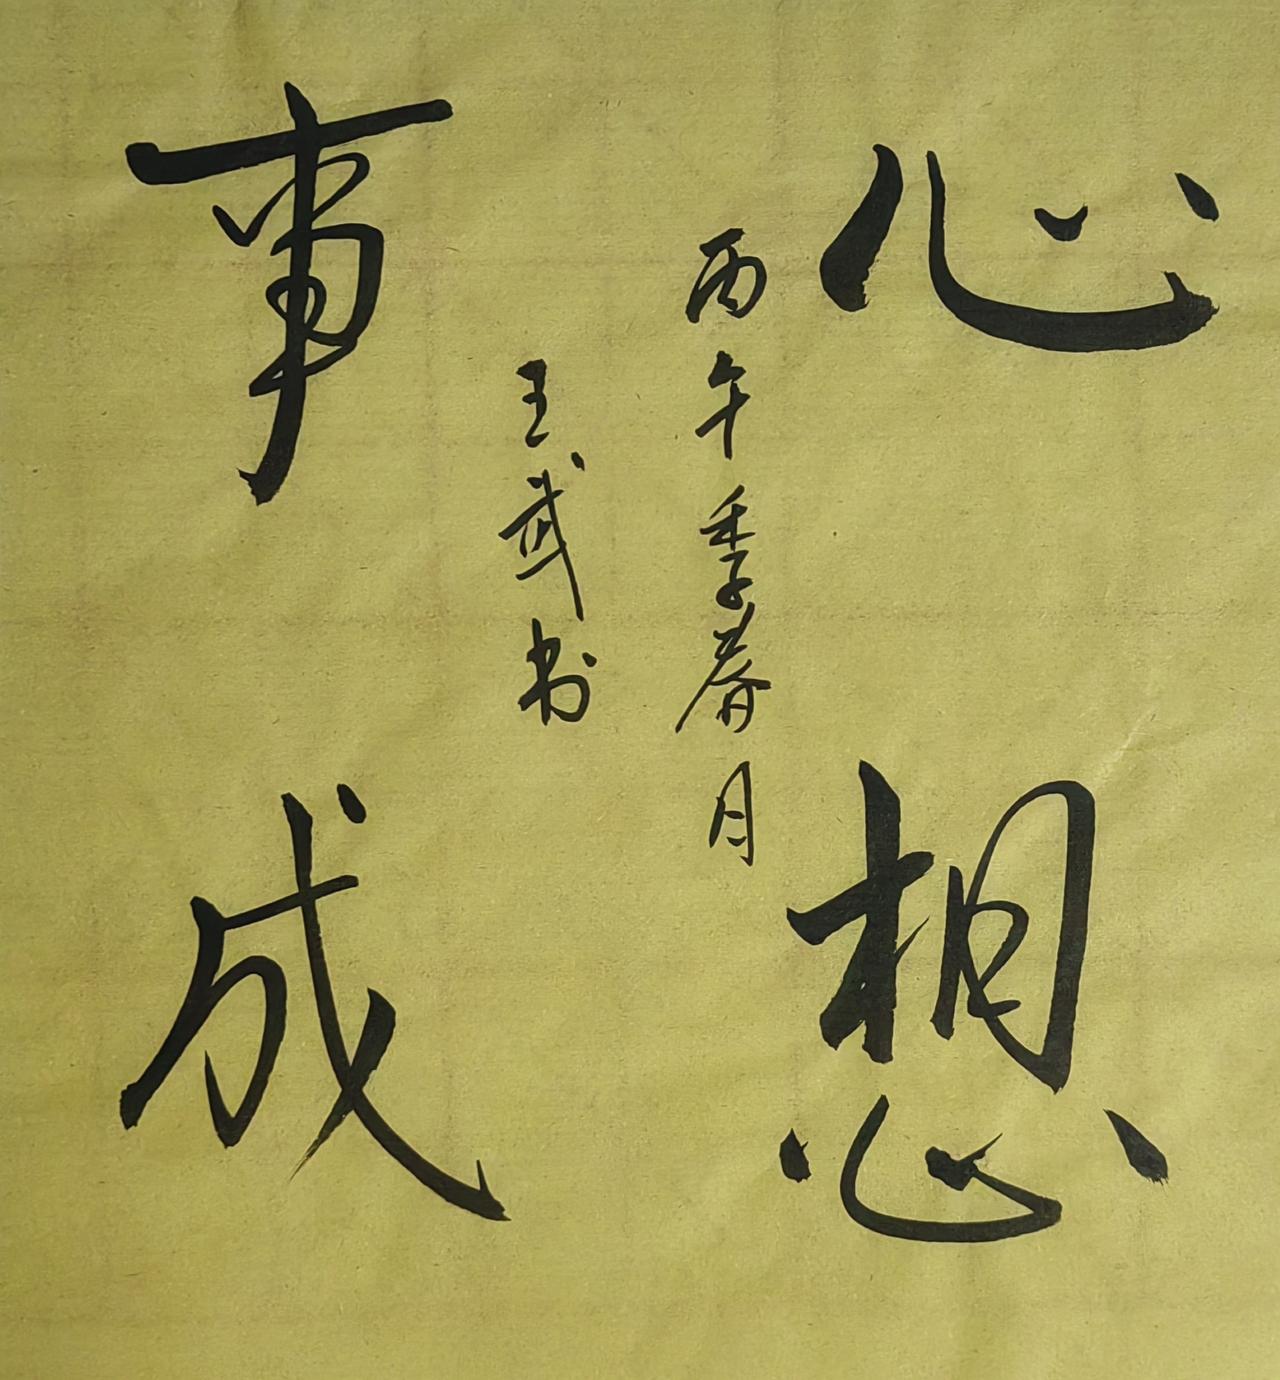 心想
事成
丙午季春月
王武书